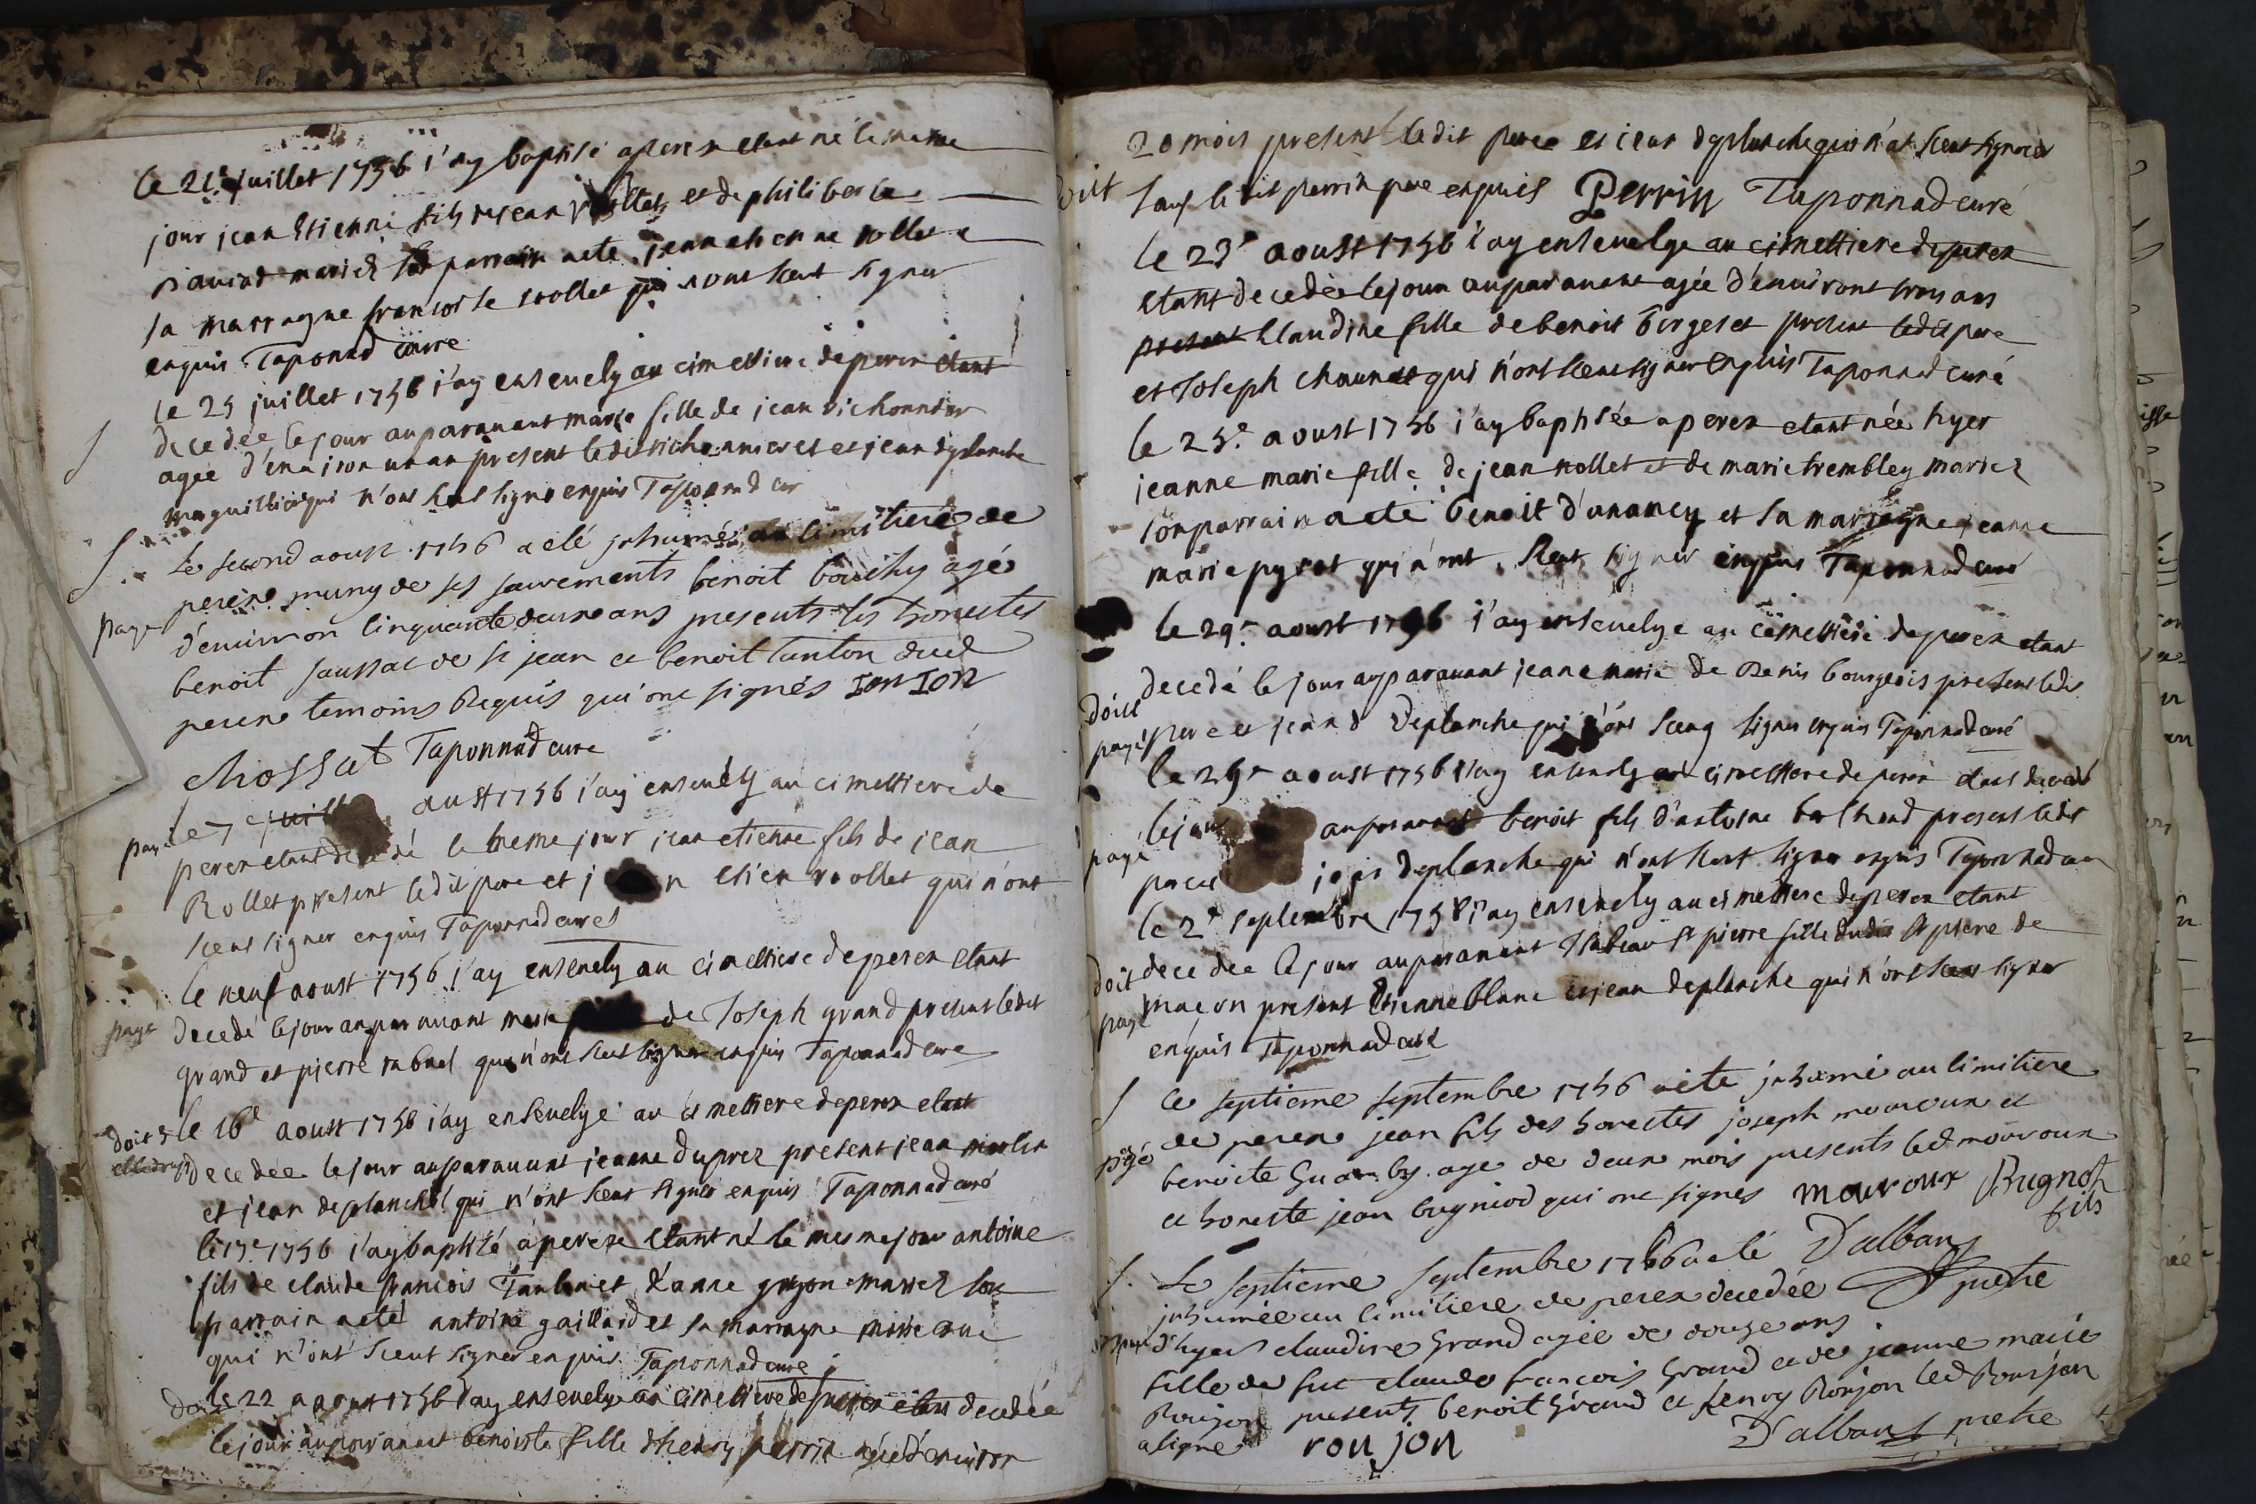 le 21e juillet 1756 j'ay baptisé a perex etant né le meme
jour jean Etienne fils de jean rollet et de philiberte
mariés son parrain a eté jean etienne rollet
sa marragne francoise rollet qui n'ont sceut signer
enquis Taponnad curé
le 25 juillet 1756 j'ay ensevely au cimettiere de perex etant
decedée le jour auparavant marie fille de jean
agée d'environ un an present ledit et jean deplanche
marguillier qui n'ont sceut signe enquis Taponnad cur
S Le second aoust 1756 a eté jnhumé au cimitiere de
perex muny de ses sacrements benoit bouchy agé
paye d'environ cinquante deux ans presents les honestes
benoit saussac de st jean et benoit tonton dud
perex temoins Requis qui ont signés Ton Ton
Chossat Taponnad cure
payé le 7e aust 1756 j'ay ensevely au cimettiere de
perex etant decedé le meme jour jean etienne fils de jean
Rollet present ledit pere et j n etien rollet qui n'ont
sceut signer enquis Taponnad cure
le neuf aoust 1756 j'ay ensevely au cimettiere de perex etant
paye decedé le jour auparavant marie de Joseph grand present ledit
grand et pierre rabuel qui n'ont sceut signer enquis Taponnad cure
doit le 16e aoust 1756 j'ay ensevelye au cimettiere de perex etant
decedée le jour auparavant jeanne duprez present jean merlin
et jean deplanche qui n'ont sceut signer enquis Taponnad curé
le 17e 1756 j'ay baptisé a perex etant né le mesme jour antoine
fils de claude francois et d'anne guyon mariez son
parrain a eté antoine gaillard et sa marragne
qui n'ont sceut signer enquis Taponnad cure
doit le 22 aoust 1756 j'ay ensevelye au cimettiere de perex etant decedée
le jour auparavant benoiste fille d'henry perrin agée d'environ
20 mois present ledit pere et jean deplanche qui n'at sceut signer
doit sauf ledit perrin pere enquis Perrin Taponnad curé
le 23e aoust 1756 j'ay ensevelye au cimettiere de perex
etant decedée le jour auparavant agée d'environt trois ans
present Claudine fille de benoit bergeret present ledit pere
et Joseph chaunet qui n'ont sceut signer enquis Taponnad curé
le 25e aoust 1756 j'ay baptisée a perex etant née hyer
jeanne marie fille de jean rollet et de marie trembley mariez
son parrain a eté benoit d'ananey et sa marragne jeanne
marie pyrot qui n'ont sceut signer enquis Taponnad curé
le 29e aoust 1756 j'ay ensevelye au cimettiere de perex etant
decedé le jour auparavant jeane marie de Denis bourgeois present ledit
doit
payé pere et jean deplanche qui n'ont sceut signer enquis Taponnad curé
le 29e aoust 1756 j'ay ensevely au cimettiere de perex etant decedé
le jour auparavant benoit fils d'antoine present ledit
payé pere jean deplanche qui n'ont sceut signer enquis Taponnad cure
le 2e septembre 1756 j'ay ensevely au cimettiere de perex etant
doit decedée le jour auparavant Isabeau St pierre fille dudit St pierre de
paye maçon present Etienne blanc et jean deplanche qui n'ont sceut signer
enquis Taponnad curé
S Le septieme septembre 1756 a eté jnhumé au cimitiere
de perex jean fils des honestes joseph mouroux et
pæyé benoite agé de deux mois presents led mouroux
et honeste jean bugniod qui ont signés mouroux Bugnot
fils
S. Le septieme septembre 1756 a eté D'alban
jnhumée au cimitiere de perex decedée pretre
d'hyer claudine Grand agée de douze ans
fille de feu claude francois Grand et de jeanne marie
Ronjon presents benoit Grand et henry Ronjon led Ronjon
a signé ron jon D'alban pretre